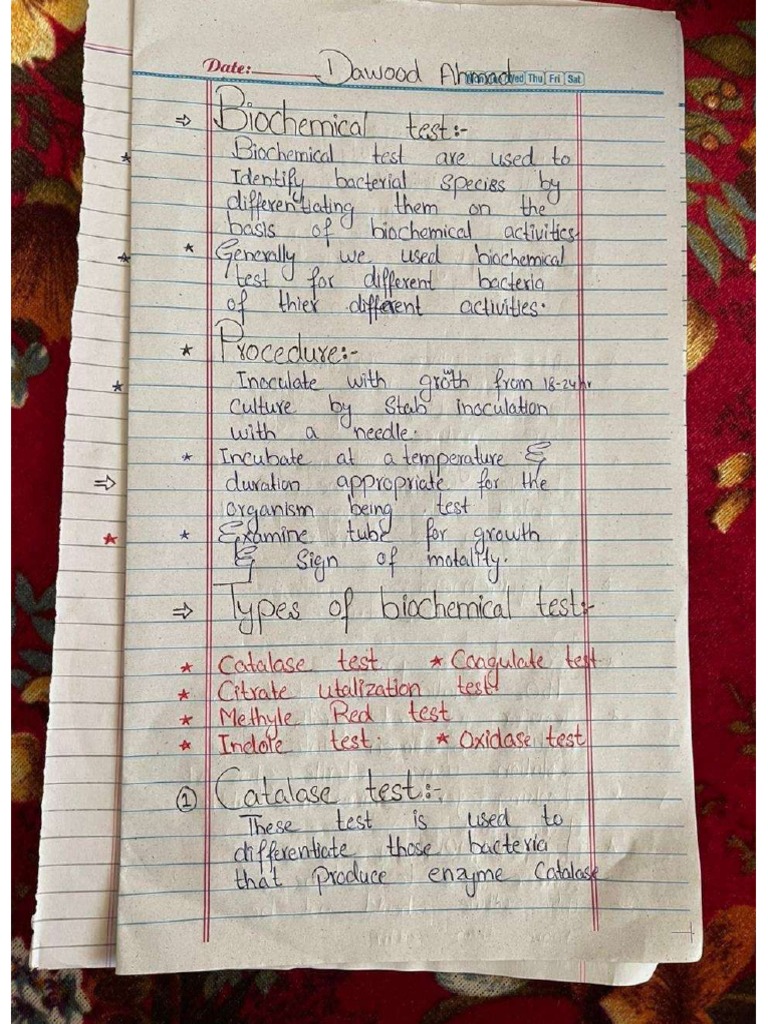 Date: Dawood Ahmad Wed Thu Fri Sat
⇒ Biochemical test:-
Biochemical test are used to
Identify bacterial species by
differentiating them on the
basis of biochemical activities.
* Generally we used biochemical
test for different bacteria
of thier different activities.
* Procedure:-
Inoculate with growth from 18-24hr
culture by stab inoculation
with a needle.
* Incubate at a temperature &
duration appropriate for the
organism being test
* Examine tube for growth
& Sign of motality.
⇒ Types of biochemical test:-
* Catalase test * Coagulate test
* Citrate utalization test
* Methyle Red test
* Indole test. * Oxidase test
① Catalase test:-
These test is used to
differentiate those bacteria
that produce enzyme Catalase